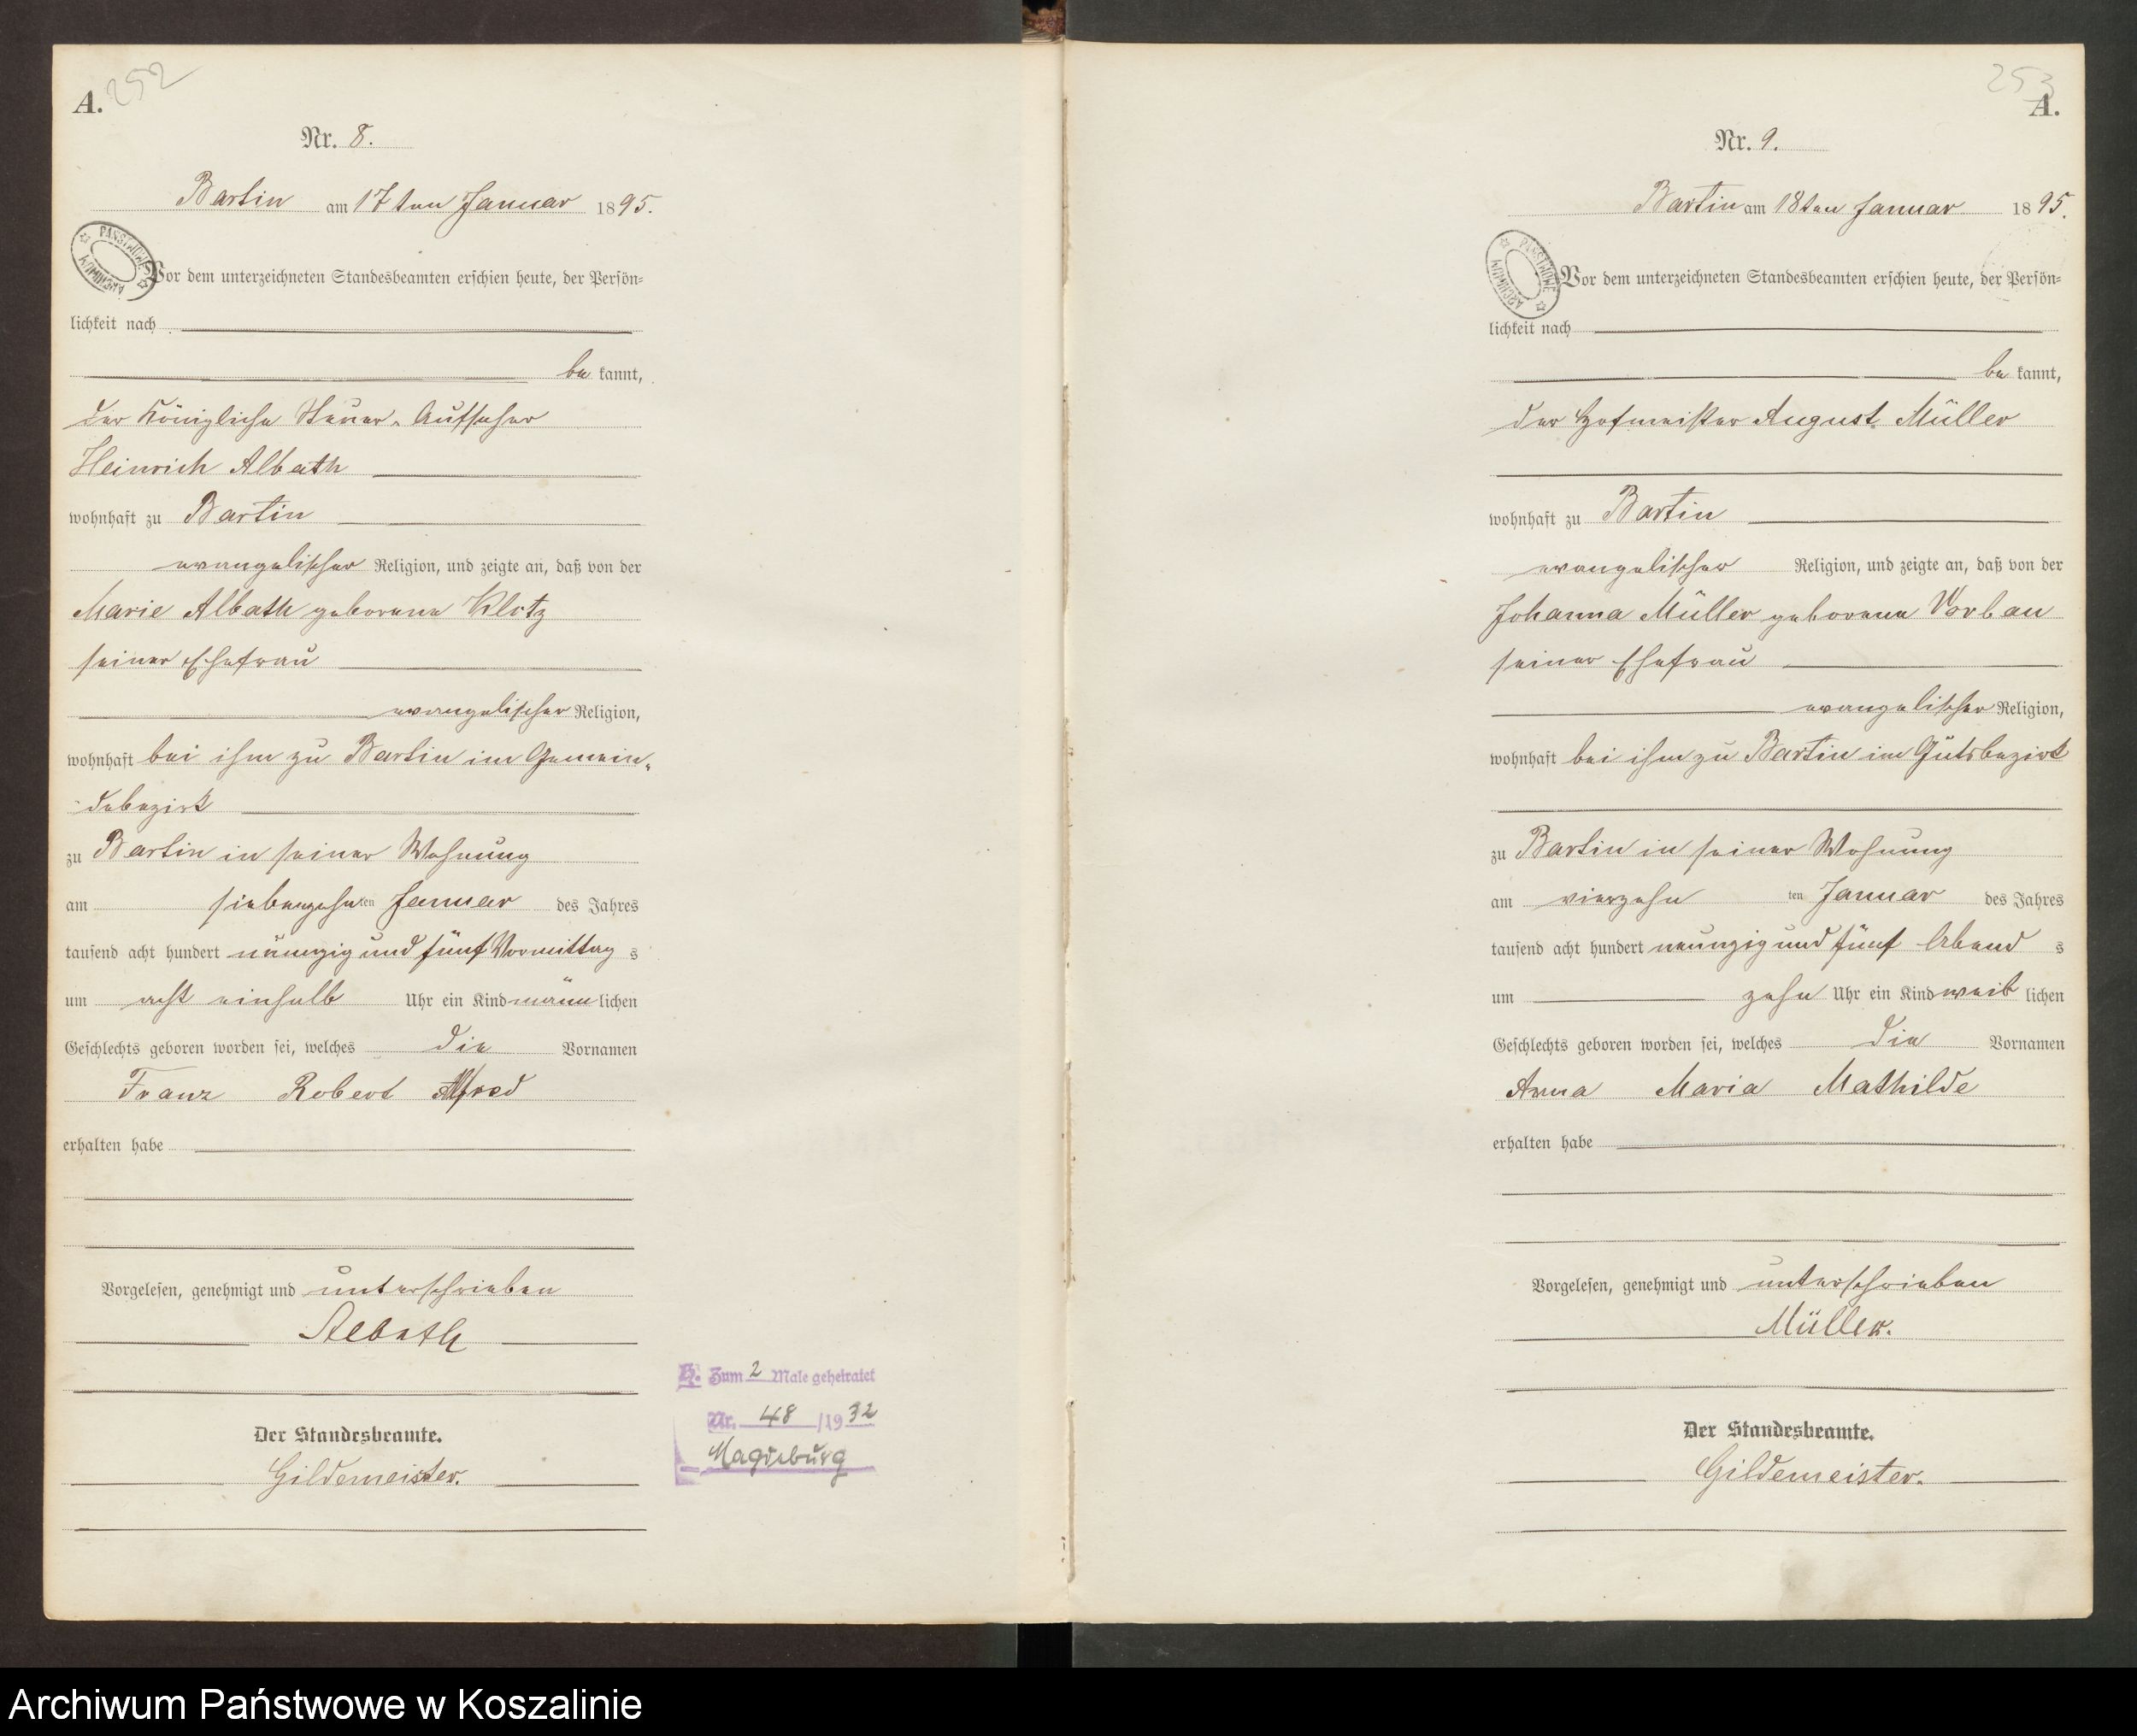 A. 252
Nr. 8.
Bartin am 17ten Januar 1895.
PAŃSTWOWE ARCHIWUM
Vor dem unterzeichneten Standesbeamten erschien heute, der Persön-
lichkeit nach
be kannt,
der Königliche Steuer-Aufseher
Heinrich Albath
wohnhaft zu Bartin
evangelischer Religion, und zeigte an, daß von der
Marie Albath geborene Klotz
seiner Ehefrau
evangelischer Religion,
wohnhaft bei ihm zu Bartin im Gemein-
debezirk
zu Bartin in seiner Wohnung
am siebenzehnten Januar des Jahres
tausend acht hundert neunzig und fünf Vormittag s
um acht einhalb Uhr ein Kind männ lichen
Geschlechts geboren worden sei, welches die Vornamen
Franz Robert Alfred
erhalten habe
Vorgelesen, genehmigt und unterschrieben
Albath
Der Standesbeamte.
Gildemeister.
H. Zum 2 Male geheiratet
Nr. 48 /1932
Magdeburg
253 A.
Nr. 9.
Bartin am 18ten Januar 1895.
PAŃSTWOWE ARCHIWUM
Vor dem unterzeichneten Standesbeamten erschien heute, der Persön-
lichkeit nach
be kannt,
der Hofmeister August Müller
wohnhaft zu Bartin
evangelischer Religion, und zeigte an, daß von der
Johanna Müller geborene Vorbau
seiner Ehefrau
evangelischer Religion,
wohnhaft bei ihm zu Bartin im Gutsbezirk
zu Bartin in seiner Wohnung
am vierzehn ten Januar des Jahres
tausend acht hundert neunzig und fünf Abend s
um zehn Uhr ein Kind weib lichen
Geschlechts geboren worden sei, welches die Vornamen
Anna Maria Mathilde
erhalten habe
Vorgelesen, genehmigt und unterschrieben
Müller.
Der Standesbeamte.
Gildemeister.
Archiwum Państwowe w Koszalinie